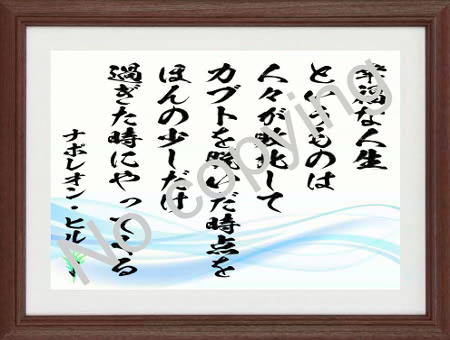 幸福な人生
というものは
人々が敗北して
カブトを脱いだ時点を
ほんの少しだけ
過ぎた時にやってくる
ナポレオン・ヒル
No copying